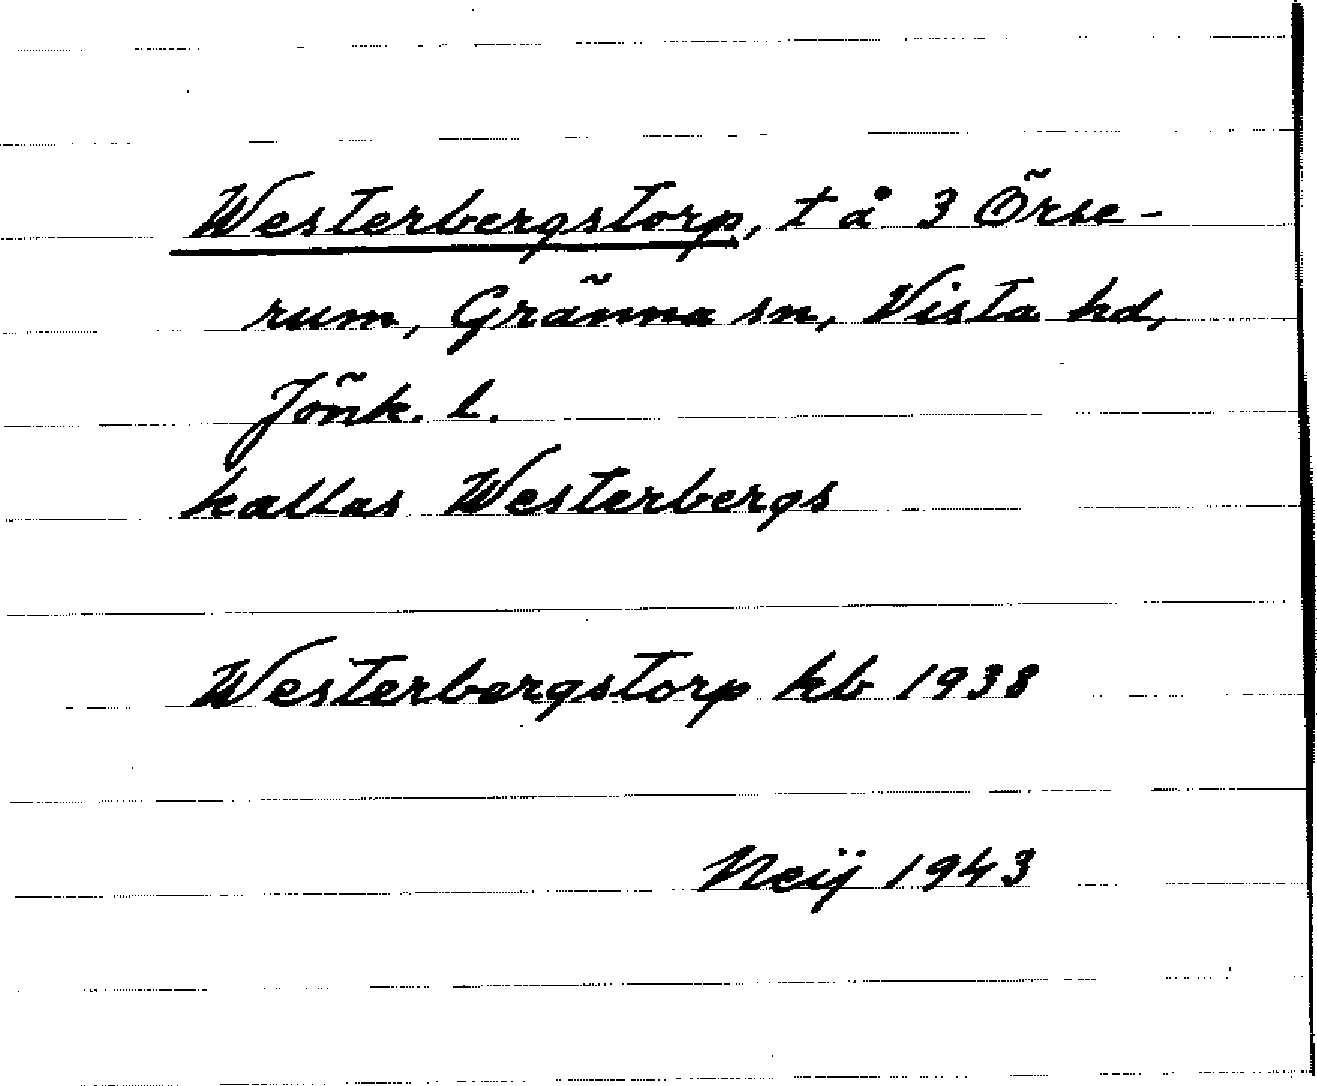 Westerbergstorp, t å 3 Örse-
rum, Gränna sn, Vista hd,
Jönk. l.
kallas Westerbergs
Westerbergstorp kb 1938
Neij 1943